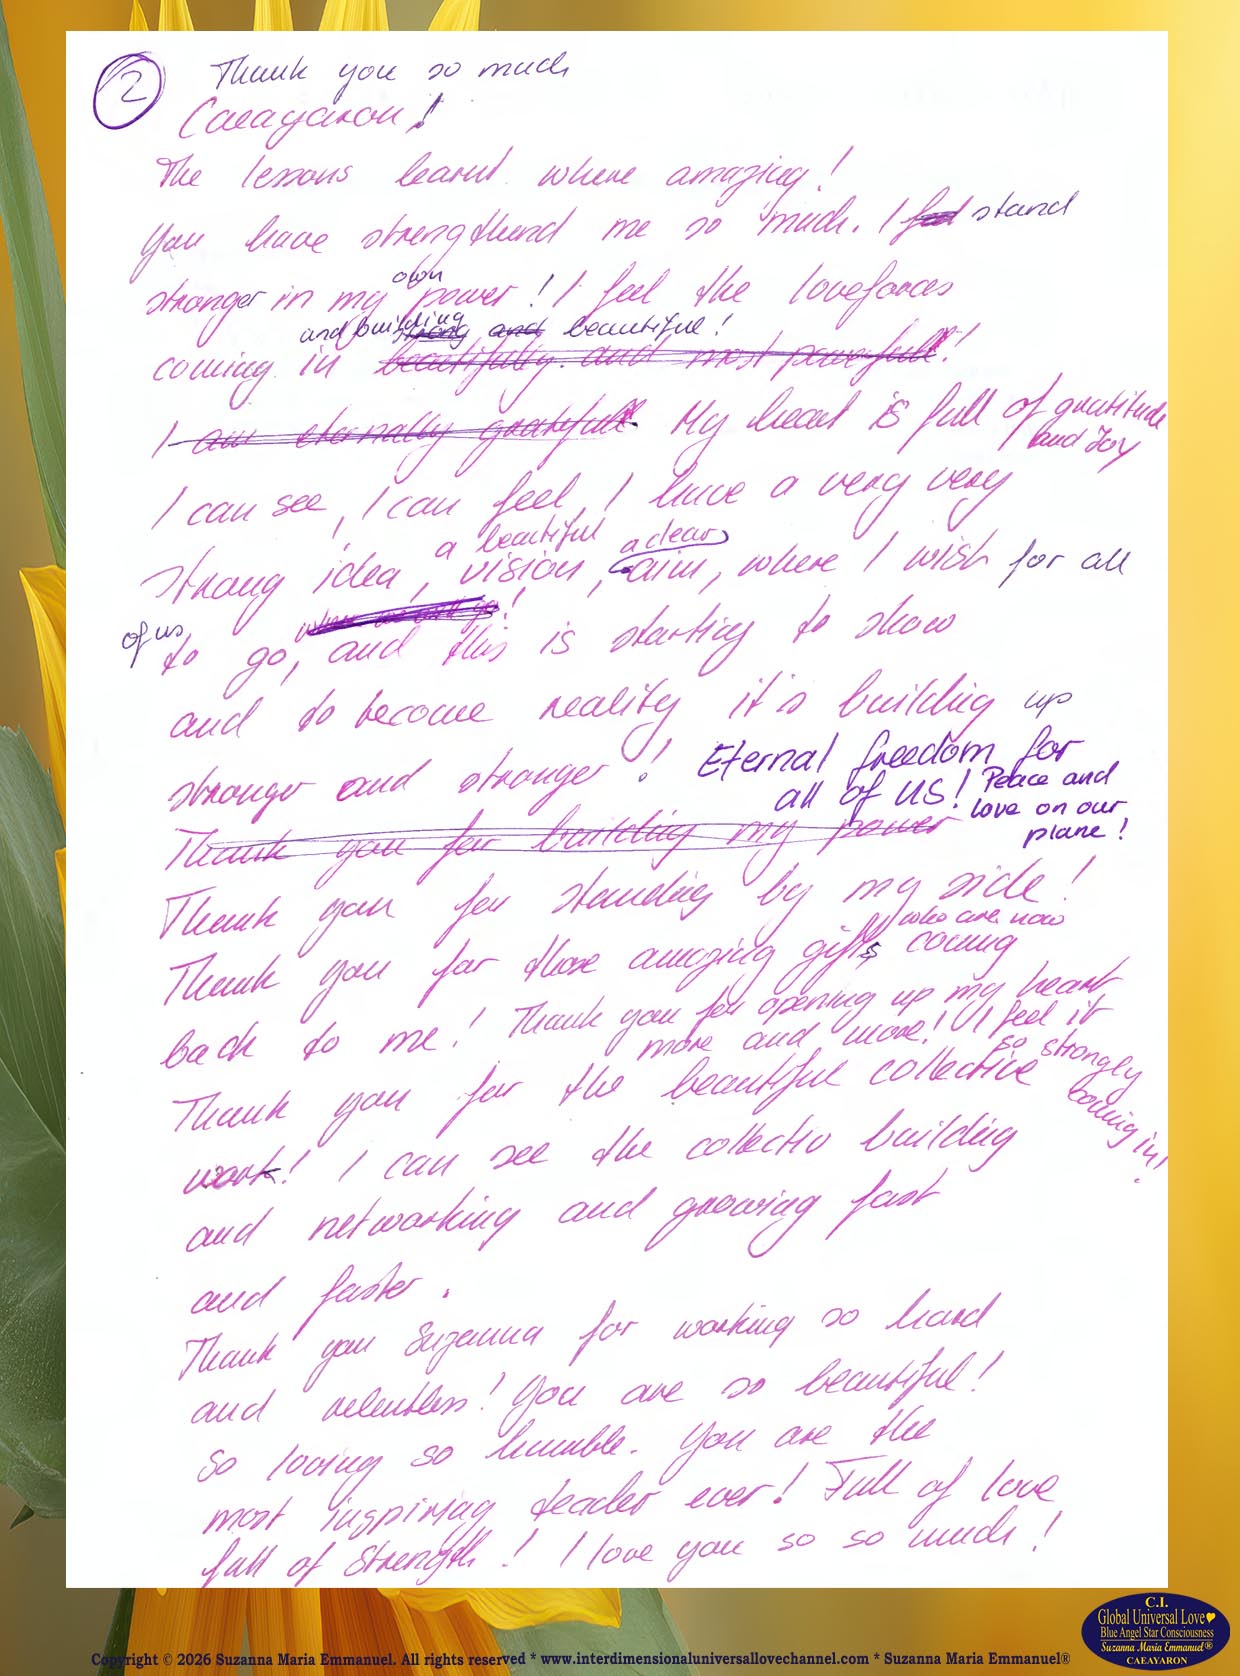 2
Thank you so much
Caeayaron!
The lessons learnt where amazing!
You have strengthend me so much. I feel stand
stronger in my own power! I feel the loveforces
and building strong and beautiful!
coming in beautifully and most powerfull!!
I am eternally gratefull. My heart is full of gratitude
and Joy
I can see, I can feel, I have a very very
a beautiful a clear
strong idea, vision, aim, where I wish for all
of us
to go, and this is starting to show
and to become reality it is building up
stronger and stronger! Eternal freedom for
all of US! Peace and
love on our
plane!
Thank you for building my power
Thank you for standing by my side!
who are now
Thank you for those amazing gifts coming
back to me! Thank you for opening up my heart
more and more! I feel it
so strongly
coming in!
Thank you for the beautiful collective
work! I can see the collectiv building
and networking and growing fast
and faster.
Thank you Suzanna for working so hard
and relentless! You are so beautiful!
So loving so humble. You are the
most inspiring teacher ever! Full of love
full of strength! I love you so so much!
C.I.
Global Universal Love
Blue Angel Star Consciousness
Suzanna Maria Emmanuel®
CAEAYARON
Copyright © 2026 Suzanna Maria Emmanuel. All rights reserved * www.interdimensionaluniversallovechannel.com * Suzanna Maria Emmanuel®